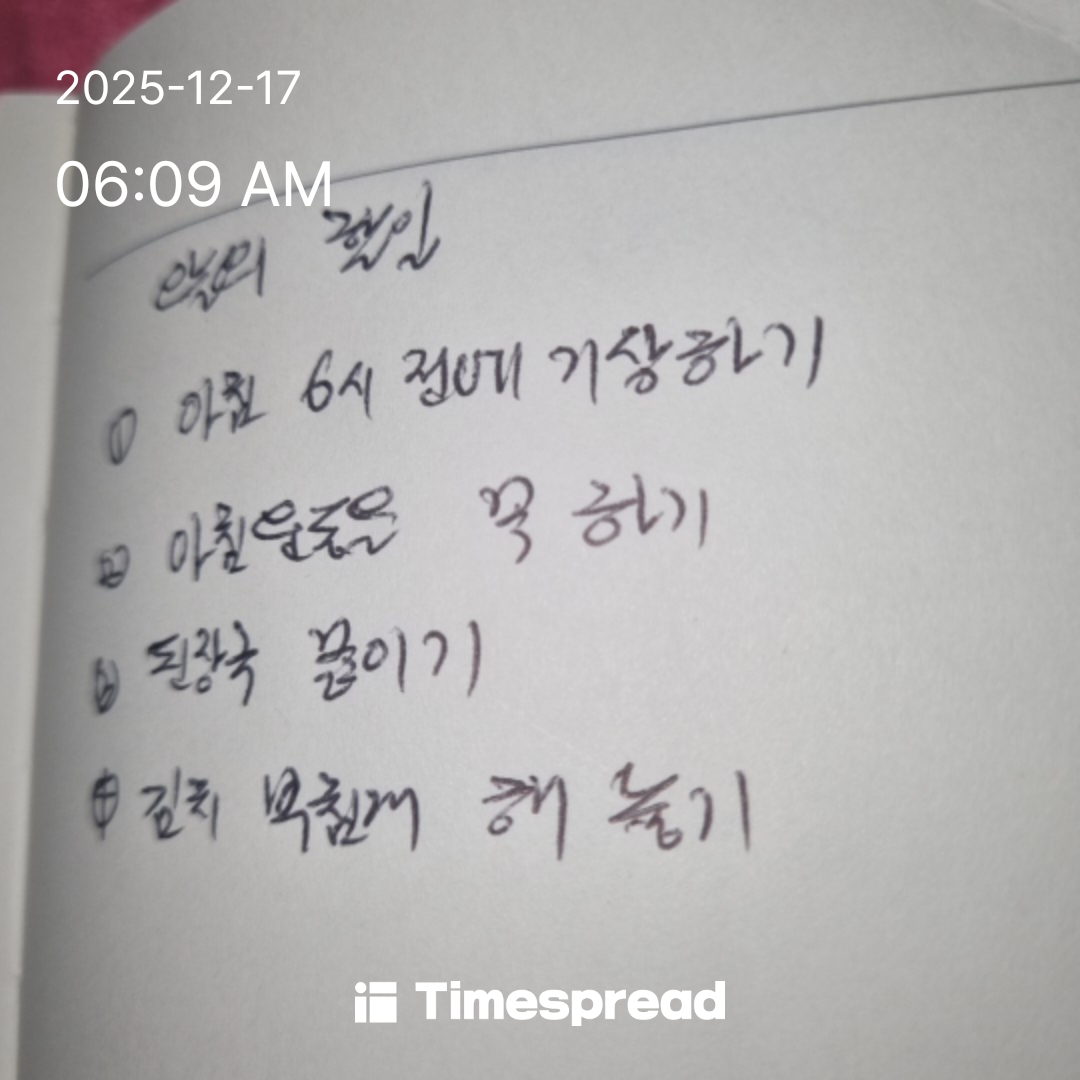 2025-12-17
06:09 AM
오늘의 할일
① 아침 6시 전에 기상하기
② 아침운동을 꼭 하기
③ 된장국 끓이기
④ 김치 볶음 해 놓기
Timespread